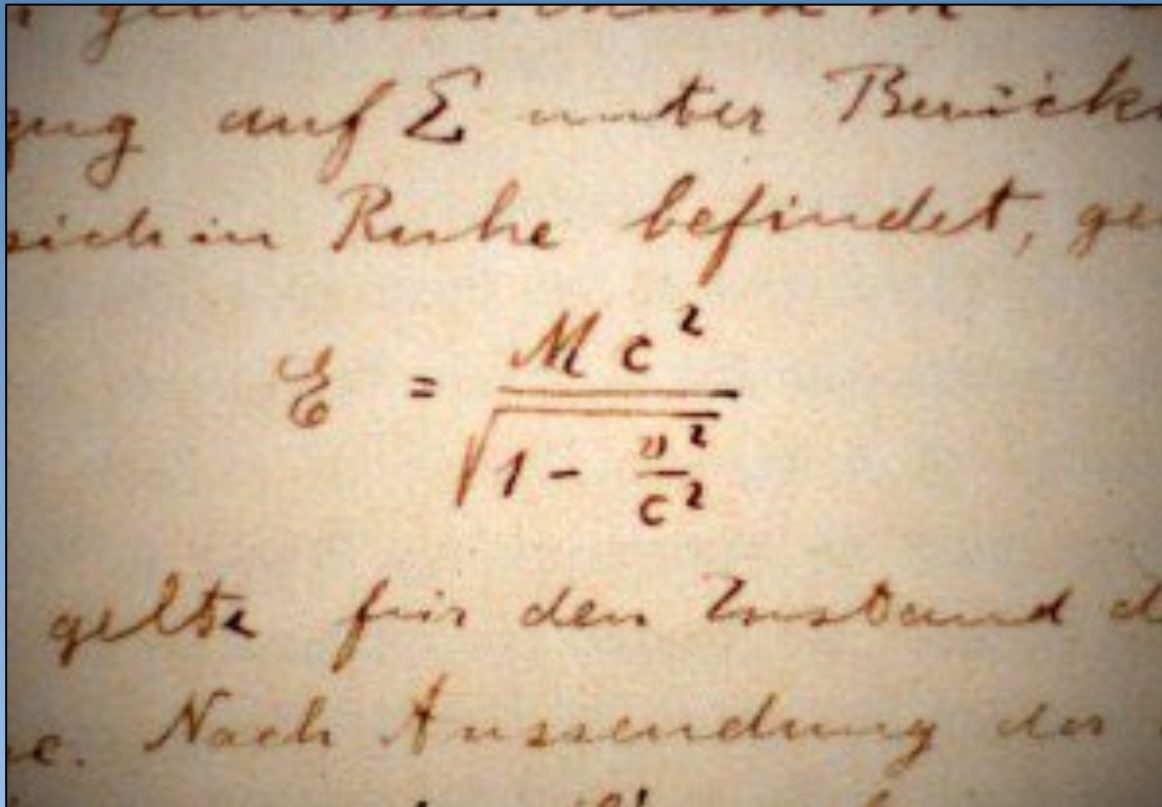 auf Σ unter
sich in Ruhe befindet,
ℰ = M c² / √(1 - v²/c²)
gelte für den Zustand
Nach Aussendung der